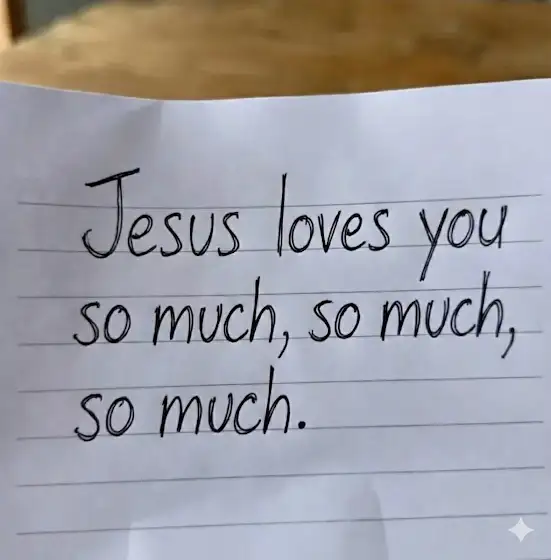 Jesus loves you
so much, so much,
so much.